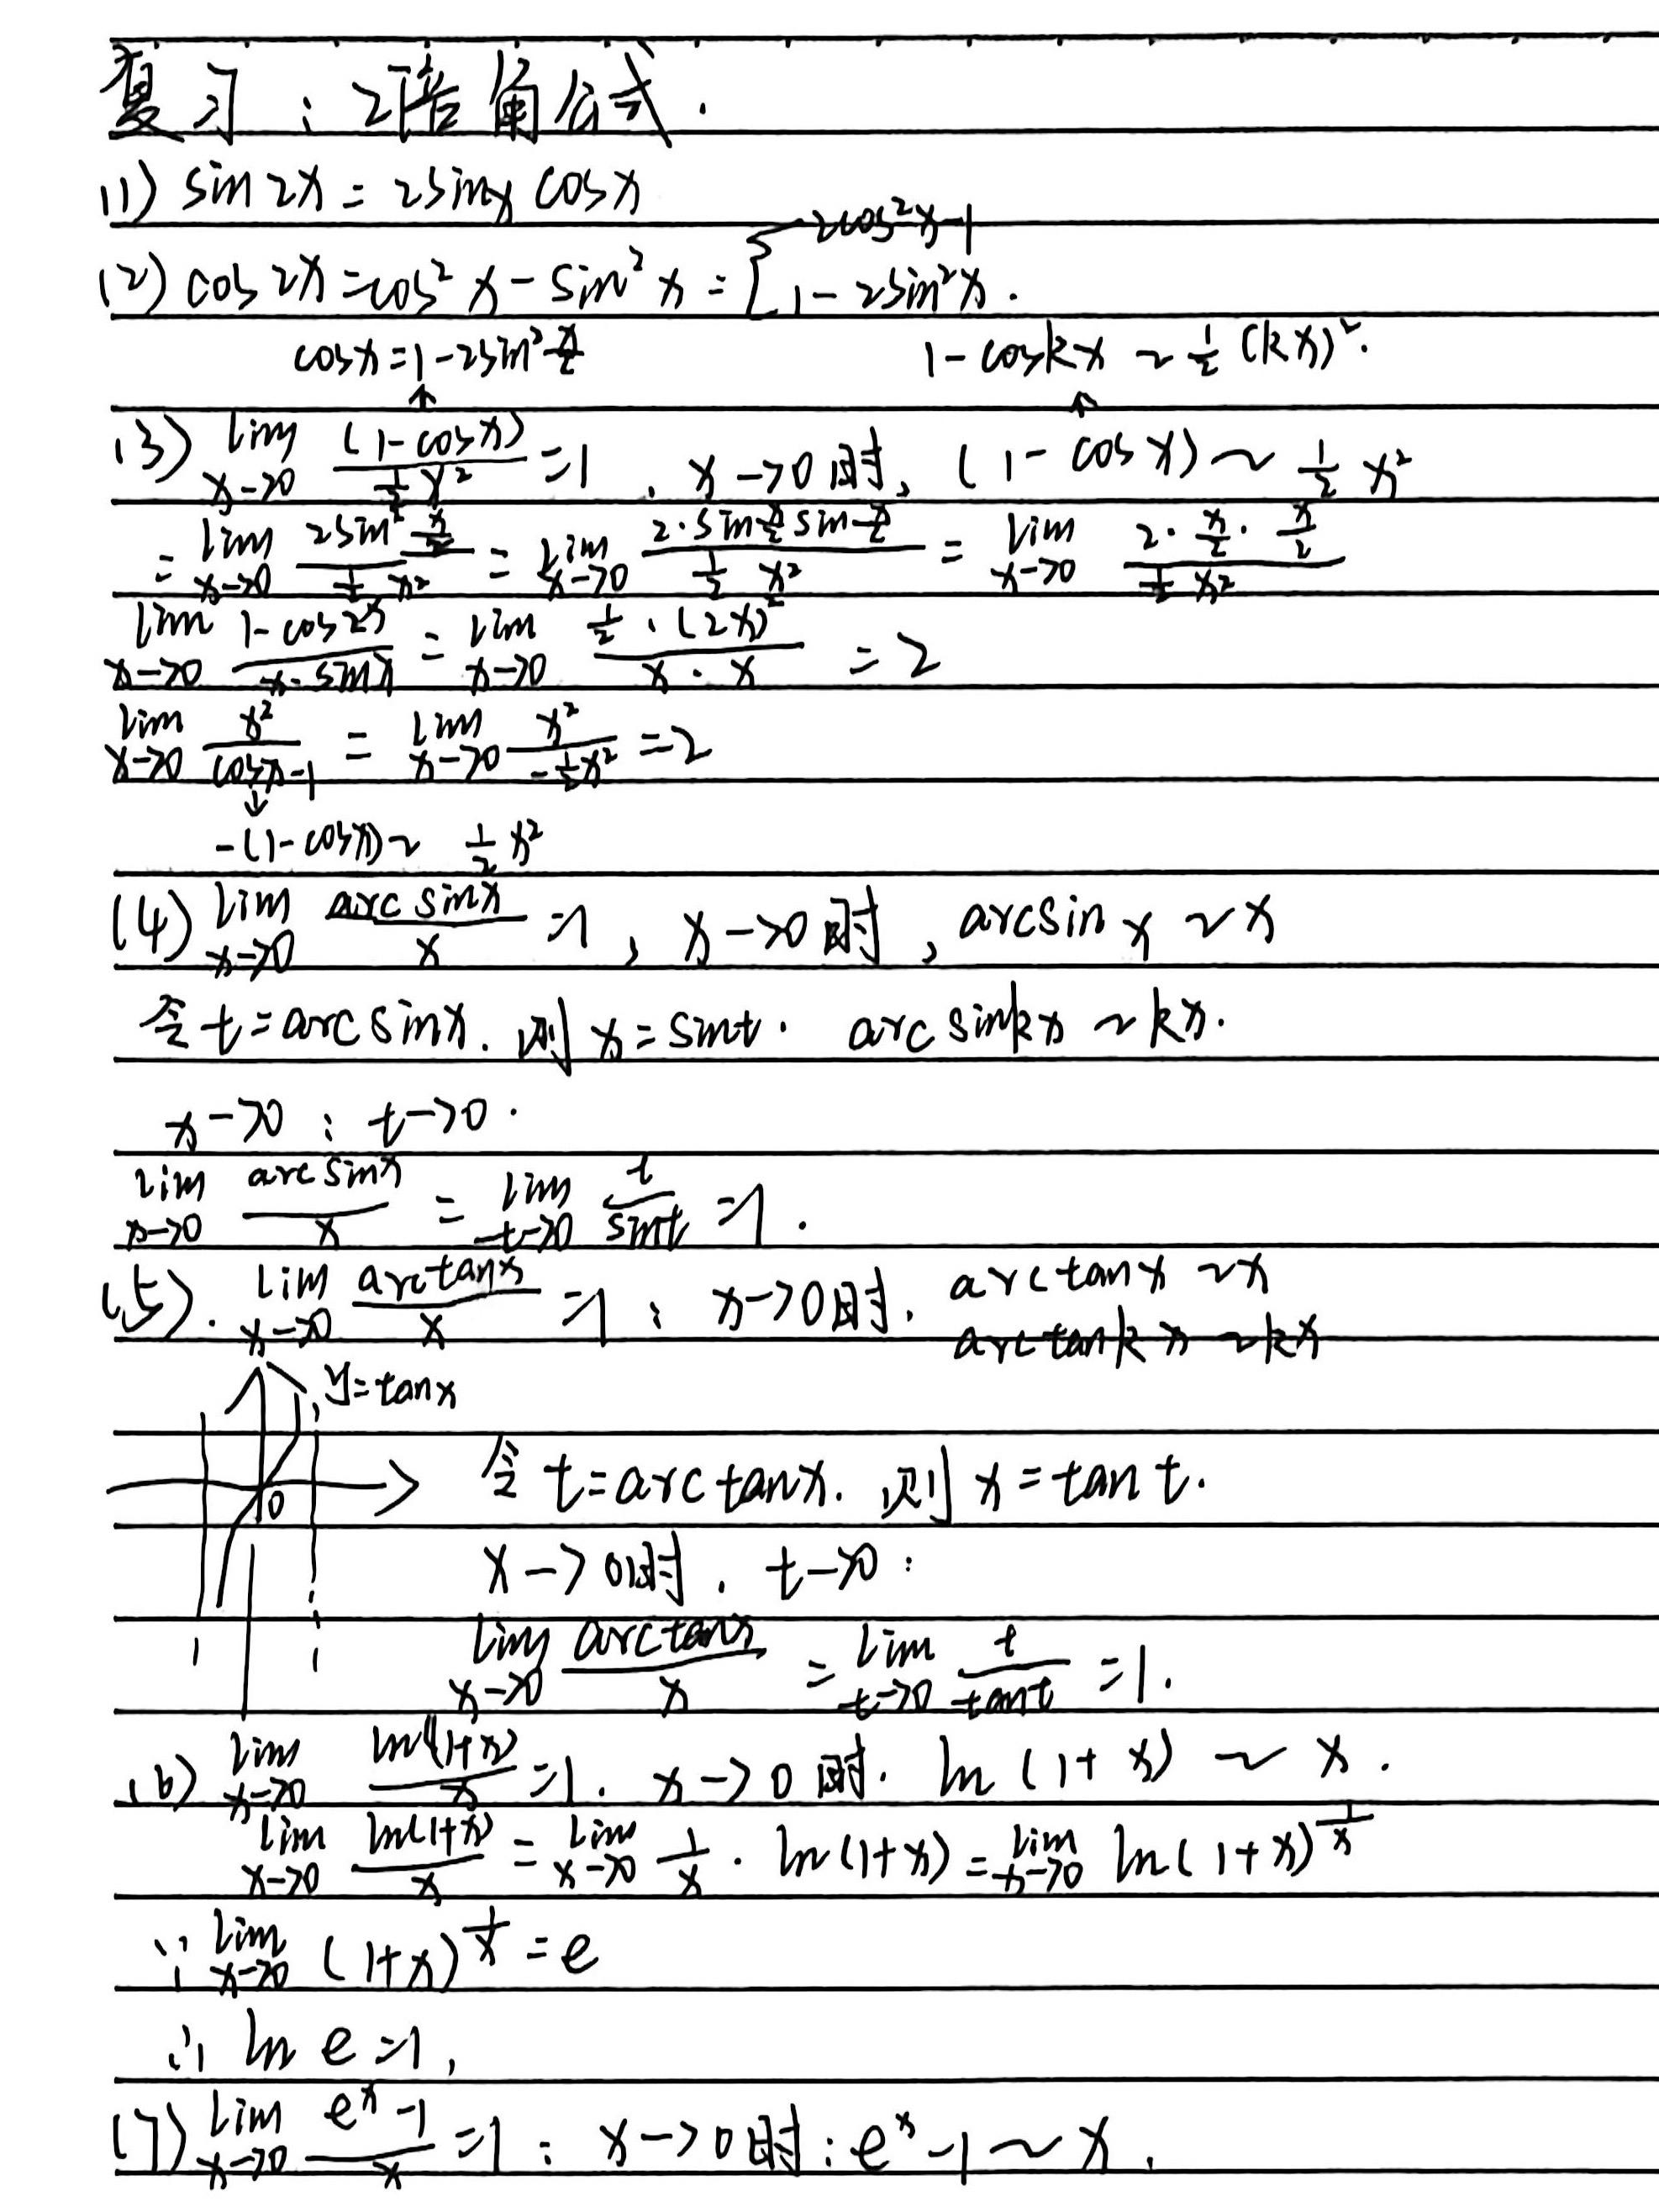 复习：2倍角公式.
(1) sin2x = 2sinx cosx
(2) cos2x = cos²x - sin²x = { 2cos²x-1
1-2sin²x.
cosx = 1-2sin² x/2    1-coskx ~ 1/2 (kx)².
↑    ↑
(3) lim x->0 (1-cosx)/(1/2 x²) = 1 . x->0时, (1-cosx) ~ 1/2 x²
= lim x->0 (2sin² x/2)/(1/2 x²) = lim x->0 (2·sin x/2 sin x/2)/(1/2 x²) = lim x->0 (2· x/2 · x/2)/(1/2 x²)
lim x->0 (1-cos2x)/(x·sinx) = lim x->0 (1/2·(2x)²)/(x·x) = 2
lim x->0 x²/(cosx-1) = lim x->0 x²/(-1/2 x²) = 2
↓
-(1-cosx) ~ 1/2 x²
(4) lim x->0 (arcsinx)/x = 1, x->0时, arcsinx ~ x
令 t = arcsinx. 则 x = sint. arcsinkx ~ kx.
x->0 : t->0.
lim x->0 (arcsinx)/x = lim t->0 t/sint = 1.
(5). lim x->0 (arctanx)/x = 1 : x->0时. arctanx ~ x
arctankx ~ kx
y=tanx
0
令 t = arctanx. 则 x = tant.
x->0时. t->0:
lim x->0 (arctanx)/x = lim t->0 t/tant = 1.
(6) lim x->0 ln(1+x)/x = 1. x->0时. ln(1+x) ~ x.
lim x->0 ln(1+x)/x = lim x->0 1/x · ln(1+x) = lim x->0 ln(1+x)^(1/x)
∵ lim x->0 (1+x)^(1/x) = e
∴ ln e = 1,
(7) lim x->0 (eˣ-1)/x = 1 : x->0时: eˣ-1 ~ x.